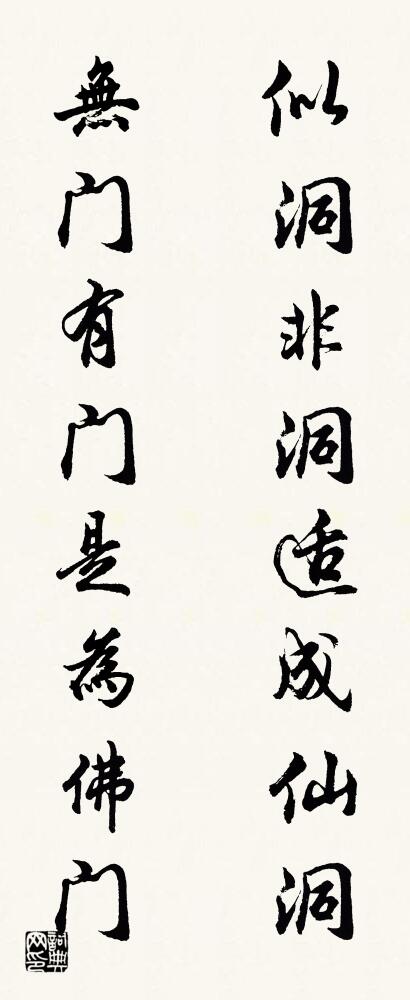 似洞非洞适成仙洞
無门有门是為佛门
詞典
网印